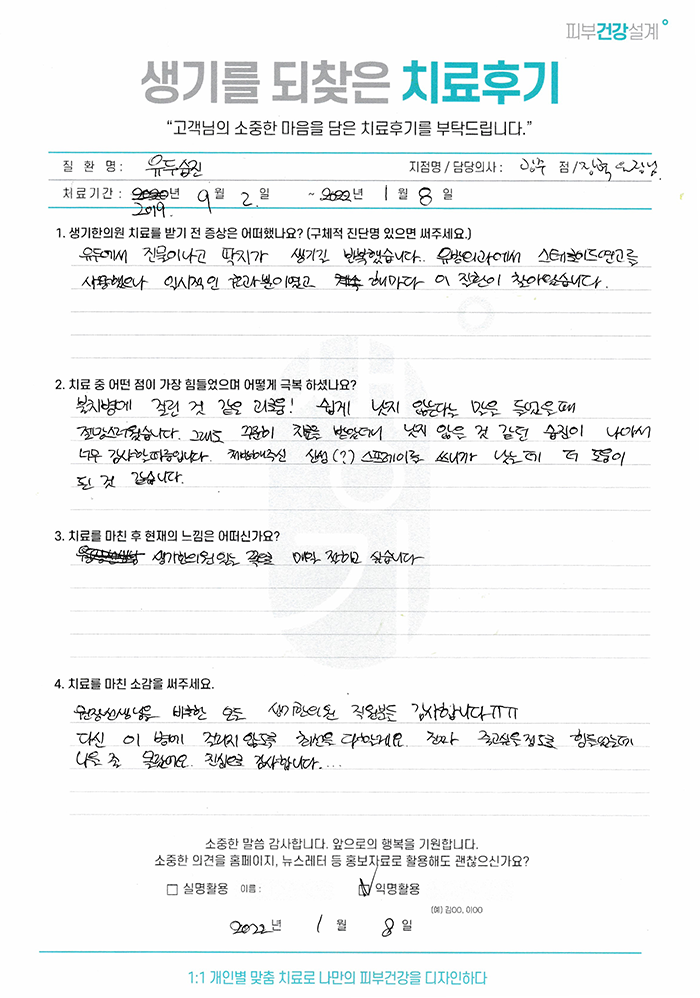 피부건강설계
생기를 되찾은 치료후기
“고객님의 소중한 마음을 담은 치료후기를 부탁드립니다.”
질 환 명 : 유두습진 지점명 / 담당의사 : 광주 점 /
치료기간 : 2020년 9월 2일 ~ 2022년 1월 8일
2019.
1. 생기한의원 치료를 받기 전 증상은 어떠했나요? (구체적 진단명 있으면 써주세요.)
유두에서 진물이나고 딱지가 생기길 반복했습니다. 유방외과에서 스테로이드연고를
사용했으나 일시적인 효과뿐이였고 해마다 이 질환이 찾아왔습니다.
2. 치료 중 어떤 점이 가장 힘들었으며 어떻게 극복 하셨나요?
불치병에 걸린 것 같은 괴로움! 쉽게 낫지 않는다는 말을 들었을때
절망스러웠습니다. 그래도 꾸준히 치료를 받았더니 낫지 않을 것 같던 습진이 나아서
너무 감사한마음입니다. 처방해주신 (?) 스프레이를 쓰니까 낫는데 더 도움이
된 것 같습니다.
3. 치료를 마친 후 현재의 느낌은 어떠신가요?
생기한의원 있는 쪽으로 매일 절하고 싶습니다
4. 치료를 마친 소감을 써주세요.
원장선생님을 비롯한 모든 생기한의원 직원분들 감사합니다ㅠㅠ
다신 이 병에 걸리지 않도록 최선을 다할게요. 진짜 죽고싶을정도로 힘들었는데
나을 줄 몰랐어요. 진심으로 감사합니다....
소중한 말씀 감사합니다. 앞으로의 행복을 기원합니다.
소중한 의견을 홈페이지, 뉴스레터 등 홍보자료로 활용해도 괜찮으신가요?
실명활용 이름 : 익명활용
(예) 김OO, 이OO
2022년 1월 8일
1:1 개인별 맞춤 치료로 나만의 피부건강을 디자인하다